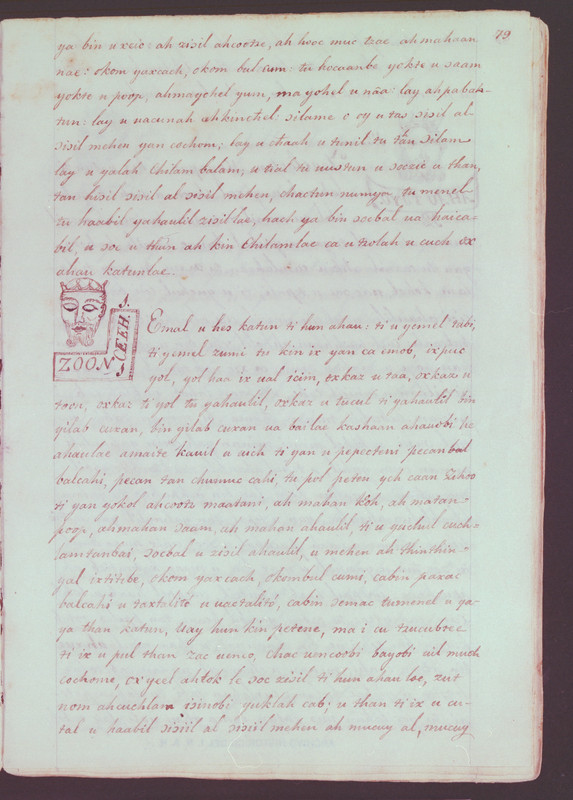 79
ya bin uxcic: ah zisil ahcootze, ah hooc muc tzac ah mahaan
nae: okom yaxcach, okom bul cum: tu hocaanbe yokte u saam
yokte u poop, ahmaychel yum, mayohel u náa: lay ahpabah-
tun: lay u vacunah ahkinchel: silame o oy u tas sisil al-
sisil mehen yan cochom; lay u chaah u tunil tu tan silam
lay u yalah Chilam balam, u tial tu uustun u soccie u than,
tan hisil sisil al sisil mehen, chactun numya tu menel
tu haabil yahaulil zisillae, hach ya bin socbal ua haica-
bil, u soc u than ah kin Chilamlae ca u tzolah u cuch ox
ahau katunlae.
ZOON CEEH. 1.
Emal u hes katun ti hun ahau: ti u yemel tabi,
ti yemel zumi tu kin ix yan ca emob, ixpuc
yol, yol haa ix ual icim, oxkaz u taa, oxkaz u
toon, oxkaz ti yol tu yahaulil, oxkaz u tucul ti yahaulil bin
yilab cuxan, bin yilab cuxan ua bailac kashaan ahauobi he
ahaulae amaite kauil u uich ti yan u pepeteni pecanbal
balcahi, pecan tan chumuc cahi, tu pol peten ych caan Zihoo
ti yan yokol ahcootz maatani, ah mahan Koh, ah matan-
poop, ahmahan saam, ah mahan ahaulil ti u yuchul cuch-
lamtanbai, socbal u zisil ahaulil, u mehen ah thinthin-
yal ixtitibe, okom yaxcach, okombul cumi, cabin paxac
balcahi u taxtalitó u uactalitó, cabin semac tumenel u ya-
ya than katun, Uay hun kin petene, ma i cu tzucuboce
ti ix u pul than zac uenco, chac uencoobi bayobi uil much
cochome, ox yeel ahtok le soc zisil ti hun ahau loe, zut
nom ahcuchlam isinobi yuklah cab; u than ti ix u cu-
tal u haabil sisiil al sisiil mehen ah mucuy al, mucuy